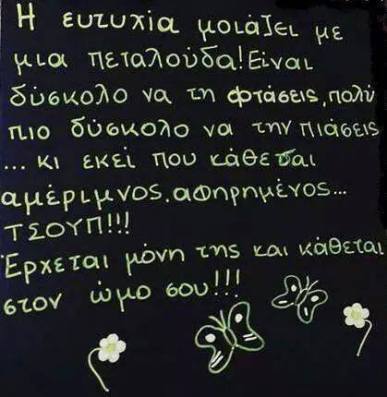 Η ευτυχία μοιάζει με
μια πεταλούδα! Είναι
δύσκολο να τη φτάσεις, πολύ
πιο δύσκολο να την πιάσεις
... κι εκεί που κάθεσαι
αμέριμνος, αφηρημένος...
ΤΣΟΥΠ!!!
Έρχεται μόνη της και κάθεται
στον ώμο σου!!!